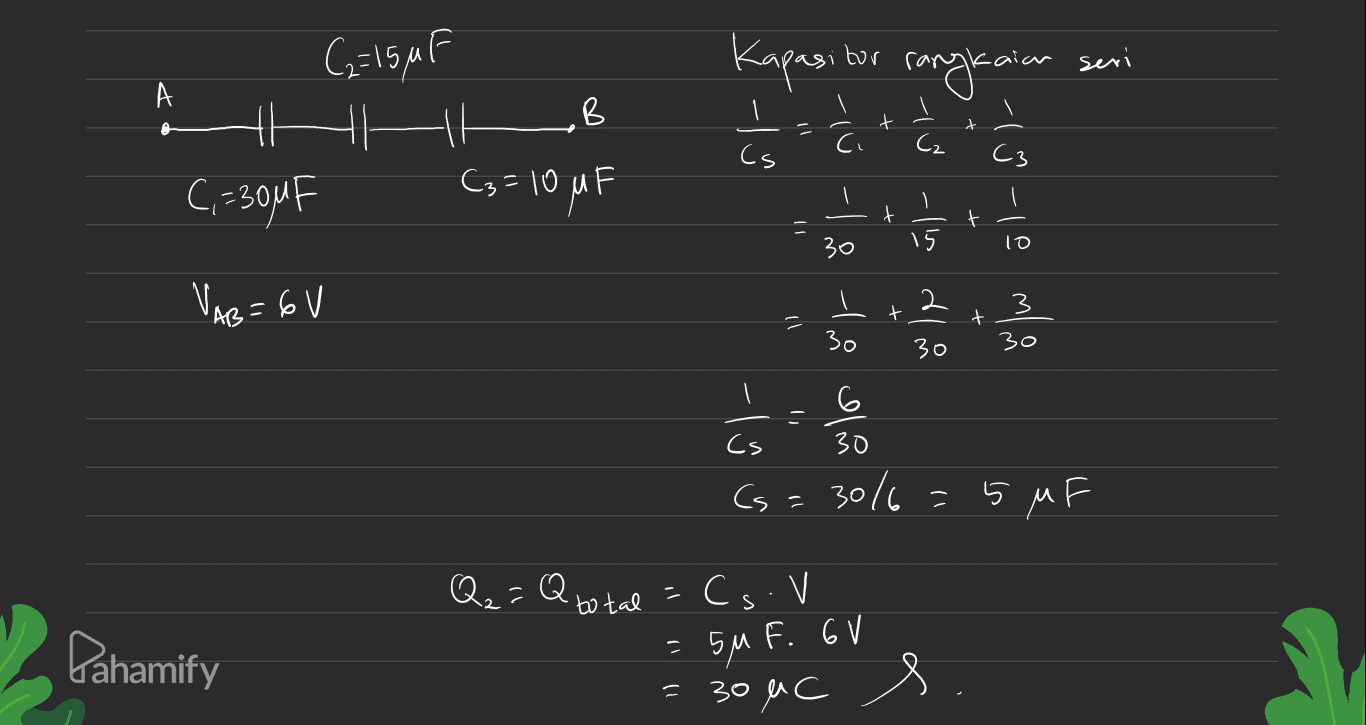 C₂=15 μF
A B
C₁=30 μF C₃=10 μF
V_AB = 6 V
Kapasitor rangkaian seri
1/Cs = 1/C₁ + 1/C₂ + 1/C₃
= 1/30 + 1/15 + 1/10
= 1/30 + 2/30 + 3/30
1/Cs = 6/30
Cs = 30/6 = 5 μF
Q₂ = Q total = Cs . V
= 5 μF . 6 V
= 30 μC
Pahamify